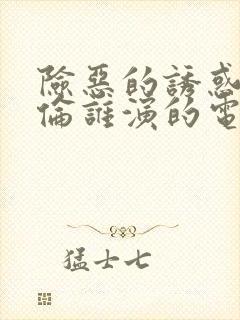 險惡的誘惑
倫誰演的電
猛士七